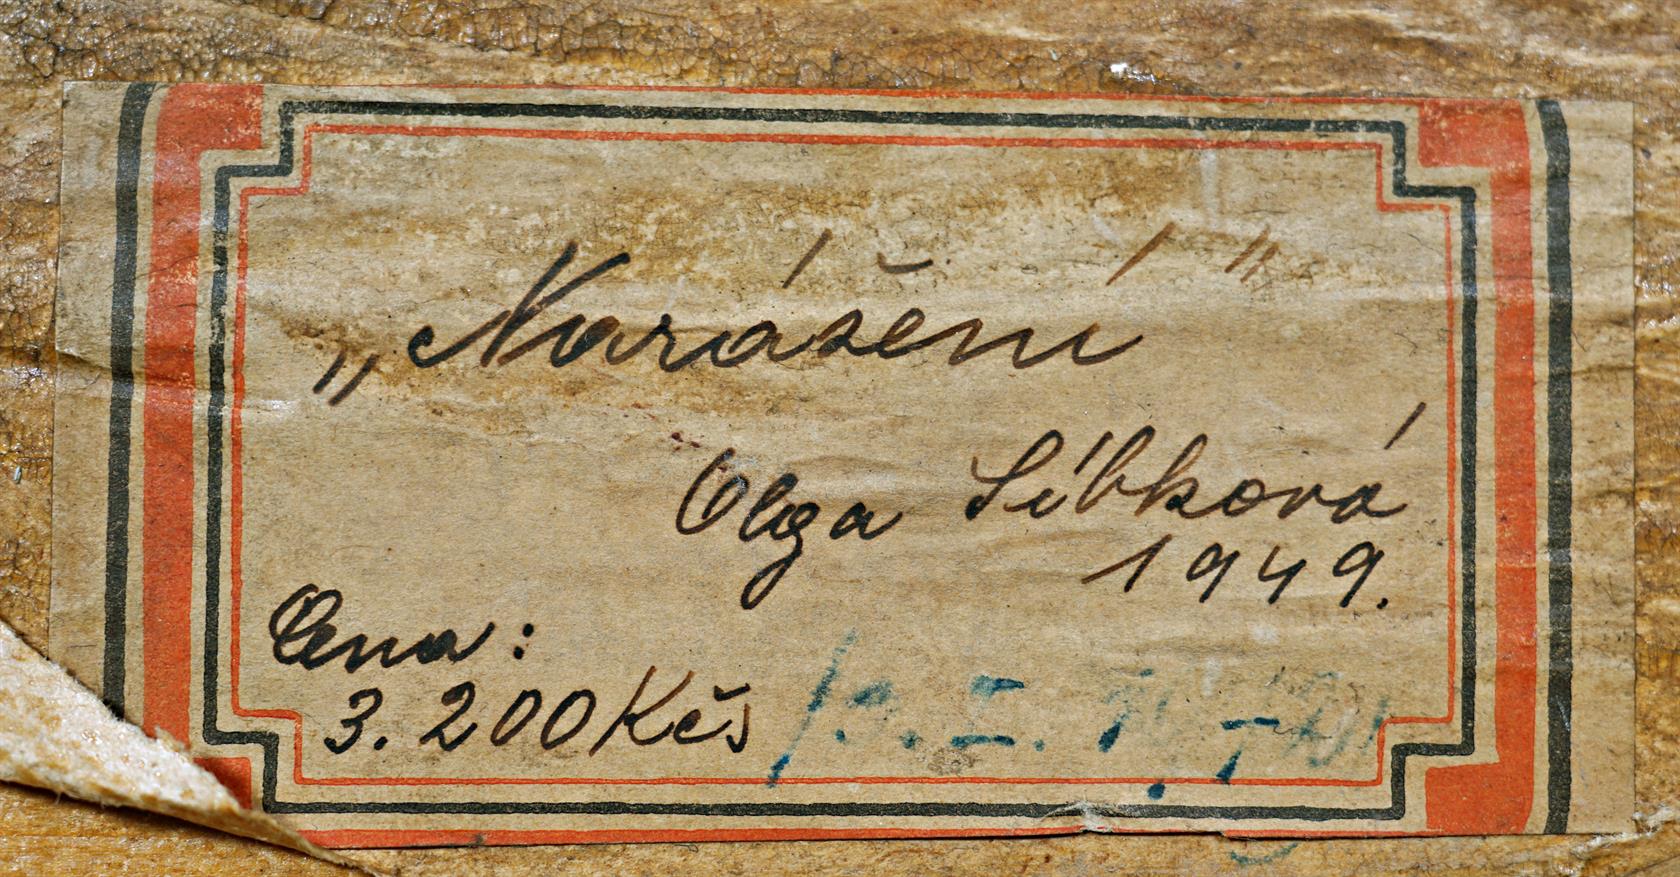 „Narášení"
Olga Síbková
1949.
Cena:
3.200 Kčs